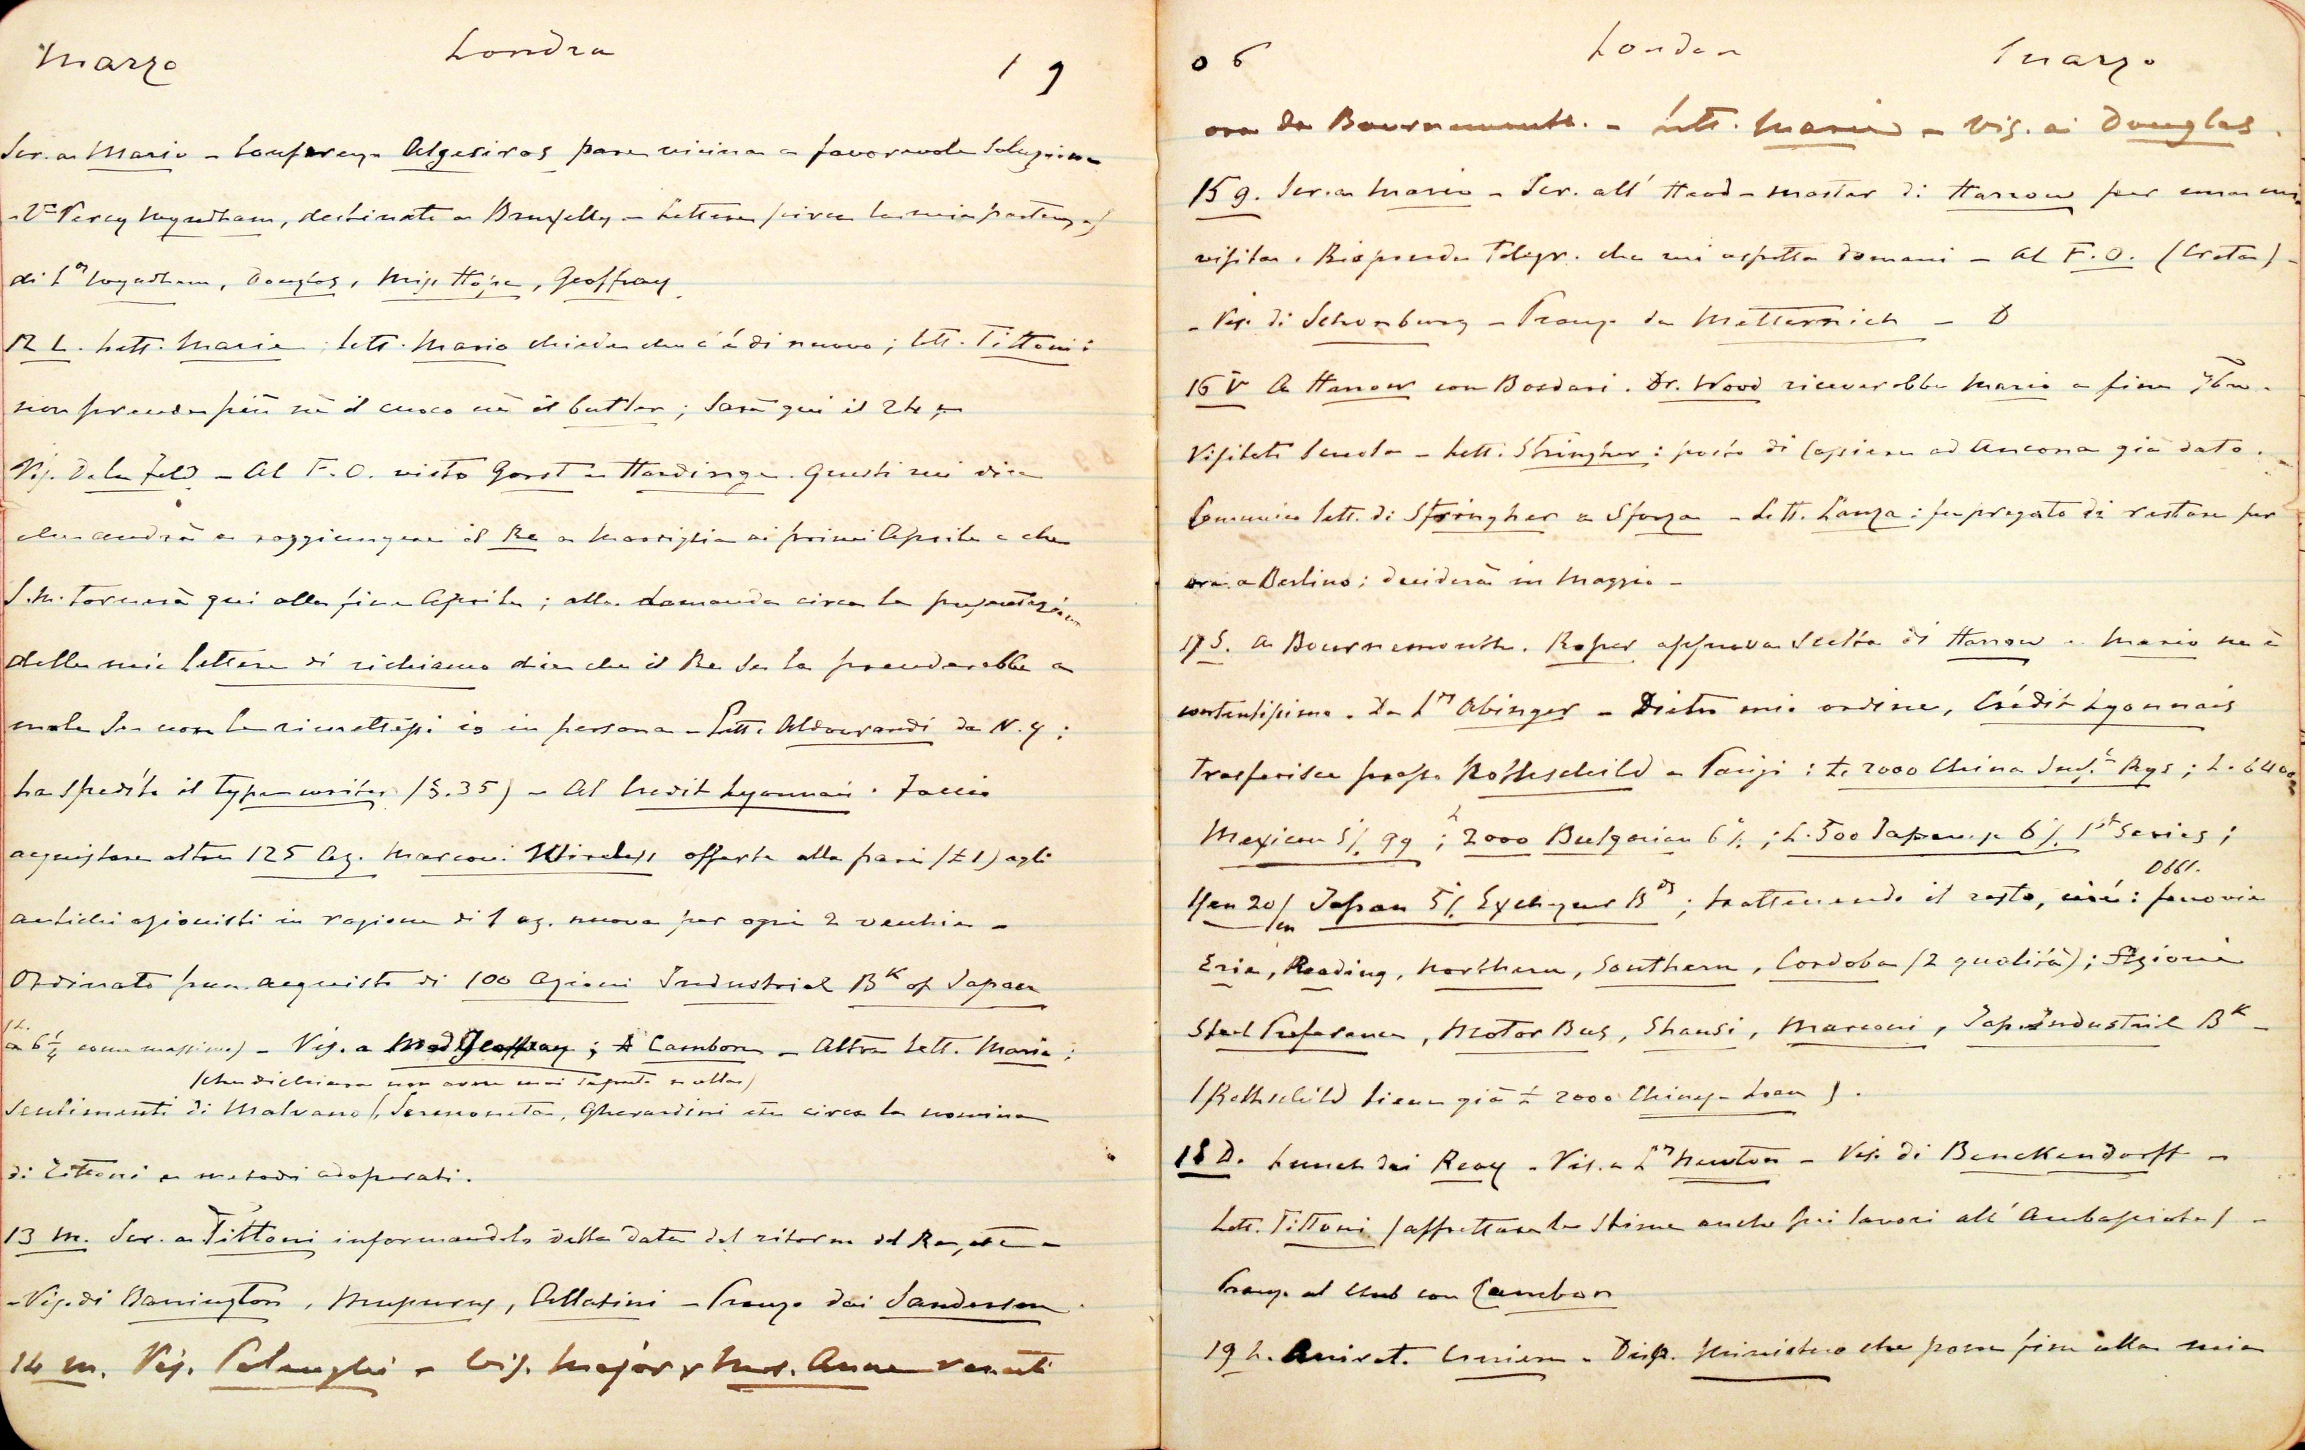 Marzo Londra 19
Scr. a Mario - Conferenza Algesiras pare vicina a favorevole soluzione
- Vis. Percy Wyndham, destinato a Bruxelles - Lettere (circa la mia partenza)
di Ly Wyndham, Douglas, Miss Hope, Geoffray
12 L. Lett. Maria; lett. Mario chiede che c'è di nuovo; lett. Tittoni:
non prende più nè il cuoco nè il butler; sarà qui il 24 -
Vis. Dalafeld - Al F.O. visto Gorst e Hardinge. Questi mi dice
che andrà a raggiungere il Re a Marsiglia ai primi Aprile e che
S.M. tornerà qui alla fine Aprile; alla domanda circa la presentazione
delle mie lettere di richiamo dice che il Re se la prenderebbe a
male se non le rimettessi io in persona - Lett. Aldovrandi da N.Y:
ha spedito il typewriter ($.35) - Al Credit Lyonnais. Faccio
acquistare altre 125 Az. Marconi Wireless offerte alla pari (£1) agli
antichi azionisti in ragione di 1 az. nuova per ogni 2 vecchie -
Ordinato pure acquisto di 100 Azioni Industrial Bk of Japan
(a 6 1/4 come massimo) - Vis. a Mad Geoffray; A Cambon - Altra lett. Maria:
(che dichiara non avere mai saputo nulla)
sentimenti di Malvano, Sermoneta, Gherardini etc circa la nomina
di Tittoni e metodi adoperati.
13 M. Scr. a Tittoni informandolo della data del ritorno del Re, etc -
- Vis. di Barrington, Musurus, Allatini - Pranzo dai Sanderson.
14 M. Vis. Pelanghi - Vis. Major & Mrs. Anne venuti
06 London Marzo
ora da Bournemouth. - Lett. Maria - Vis. ai Douglas.
15 g. Scr. a Mario - Scr. all' Head-master di Harrow per una mia
visita. Risponde telegr. che mi aspetta domani - Al F.O. (Creta) -
- Vis. di Schonburg - Pranzo da Metternich - D
16 V A Harrow con Bosdari. Dr. Wood riceverebbe Mario a fine 7bre.
Visitato scuola - Lett. Stringher: posto di Cassiere ad Ancona già dato.
Comunico lett. di Stringher a Sforza - Lett. Lanza: fu pregato di restare per
ora a Berlino; deciderà in Maggio -
17 S. A Bournemouth. Roper approva scelta di Harrow e Mario ne è
contentissimo. Da Ly Abinger - Dietro mio ordine, Crédit Lyonnais
trasferisce presso Rothschild a Parigi: £. 2000 China Impl. Rys; L. 6400
Mexican 5% 99; 2000 Bulgarian 6%; L. 500 Japanese 6% 1st Series;
Yen 20/m Japan 5% Exchequer Bds; trattenendo il resto, cioè: Obbl. ferrovie
Erie, Reading, Northern, Southern, Cordoba (2 qualità); Azioni
Steel Preference, Motor Bus, Shansi, Marconi, Jap. Industrial Bk -
(Rothschild tiene già £ 2000 Chinese Loan).
18 D. Lunch dai Reay - Vis. a Ly Newton - Vis. di Benckendorff -
Lett. Tittoni (affrettare le stime anche pei lavori all' Ambasciata) -
Pranzo al Club con Cambon
19 L. Annivers. Unione - Disp. Ministero che pone fine alla mia